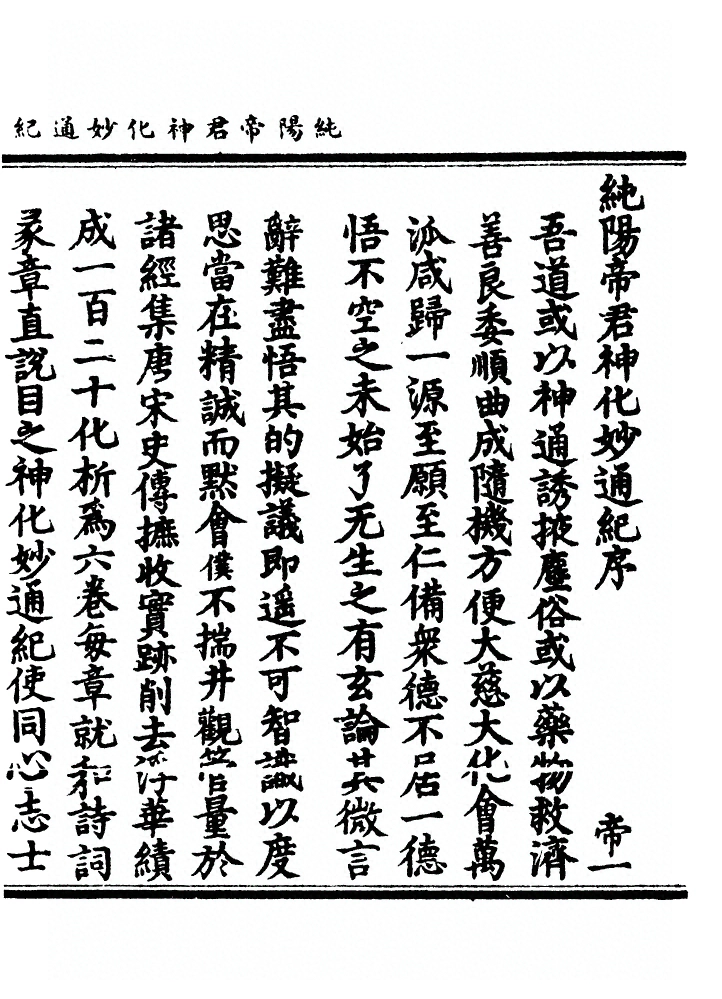 純陽帝君神化妙通紀
純陽帝君神化妙通紀序 帝一
吾道或以神通誘掖塵俗或以藥物救濟
善良委順曲成隨機方便大慈大化會萬
派咸歸一源至願至仁備衆德不居一德
悟不空之未始了无生之有玄論其微言
辭難盡悟其的擬議即遥不可智識以度
思當在精誠而默會僕不揣井觀管量於
諸經集唐宋史傳摭收實跡削去浮華績
成一百二十化析爲六卷每章就和詩詞
彖章直說目之神化妙通紀使同心志士